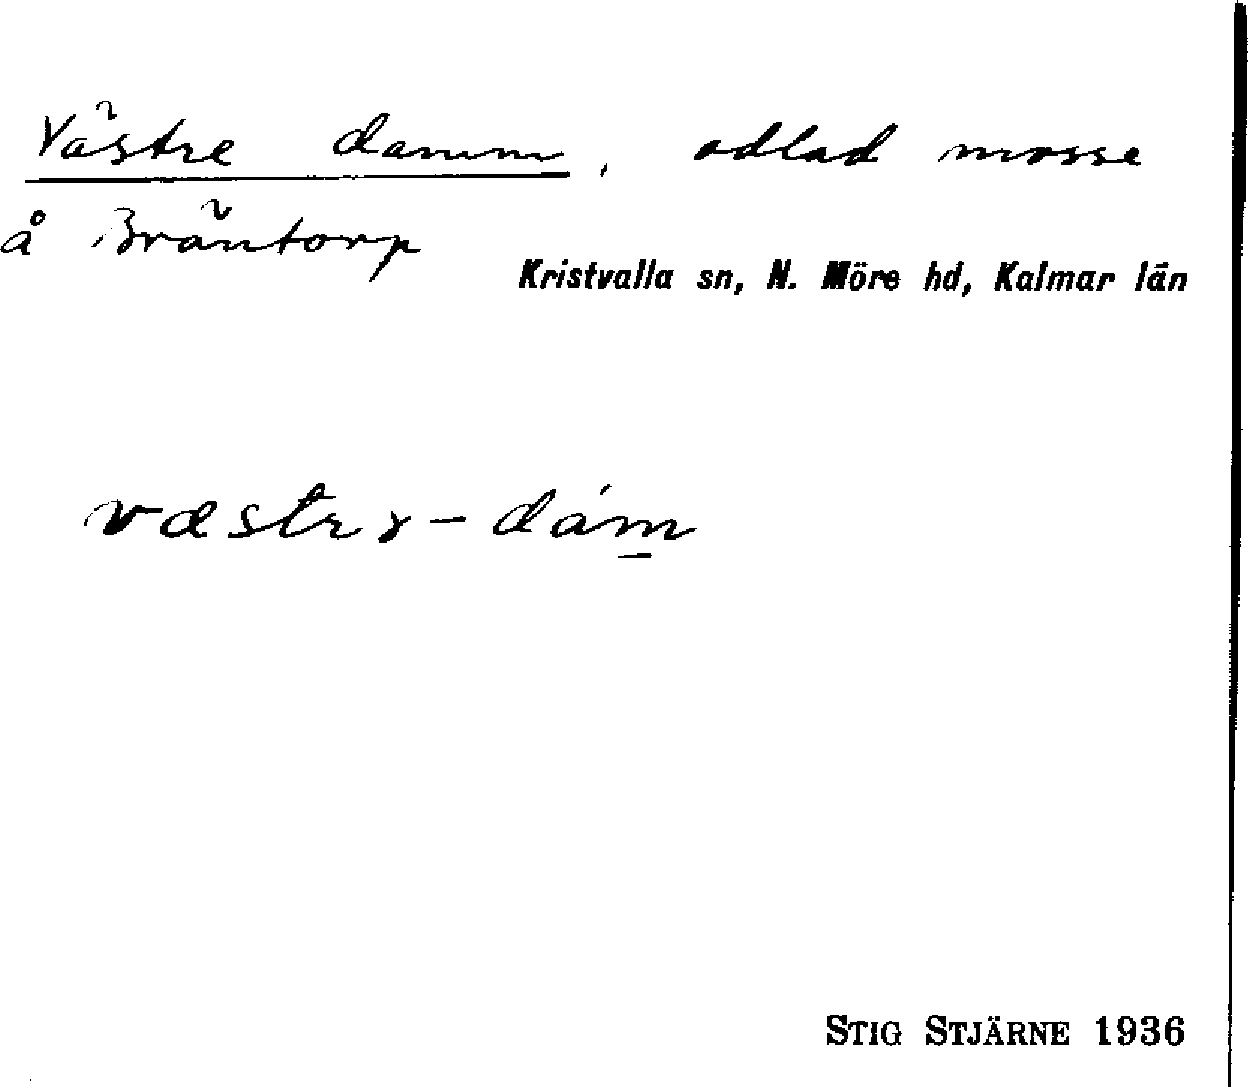 Västre damm, odlad mosse
å Bräntorp
Kristvalla sn, N. Möre hd, Kalmar län
væstrɤ-dám̲
STIG STJÄRNE 1936